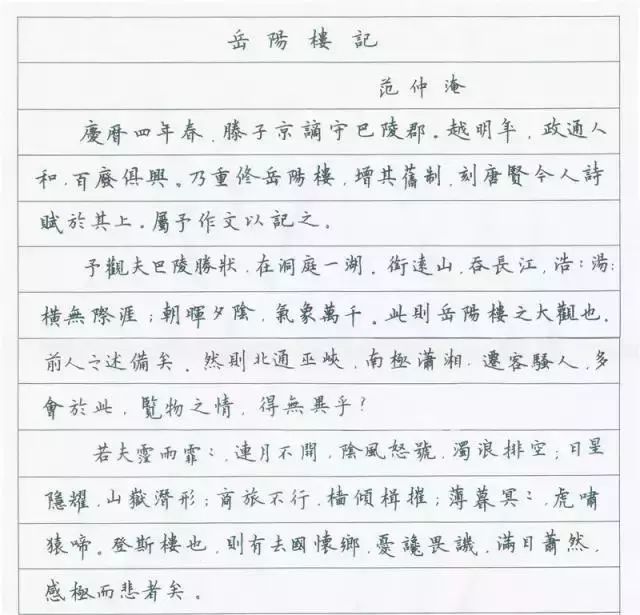 岳陽樓記
范仲淹
慶曆四年春，滕子京謫守巴陵郡。越明年，政通人
和，百廢俱興。乃重修岳陽樓，增其舊制，刻唐賢今人詩
賦於其上。屬予作文以記之。
予觀夫巴陵勝狀，在洞庭一湖。銜遠山，吞長江，浩：湯：
橫無際涯；朝暉夕陰，氣象萬千。此則岳陽樓之大觀也，
前人之述備矣。然則北通巫峽，南極瀟湘，遷客騷人，多
會於此，覽物之情，得無異乎？
若夫霪雨霏：，連月不開，陰風怒號，濁浪排空；日星
隱耀，山嶽潛形；商旅不行，檣傾楫摧；薄暮冥：，虎嘯
猿啼。登斯樓也，則有去國懷鄉，憂讒畏譏，滿目蕭然，
感極而悲者矣。